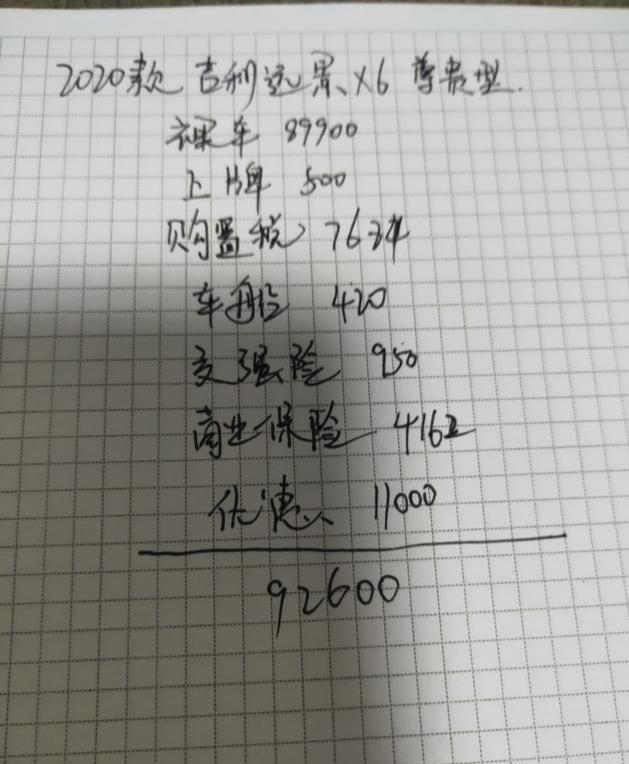 2020款 吉利远景X6 尊贵型.
裸车 89900
上牌 500
购置税 7634
车船 420
交强险 950
商业保险 4162
优惠 11000
92600